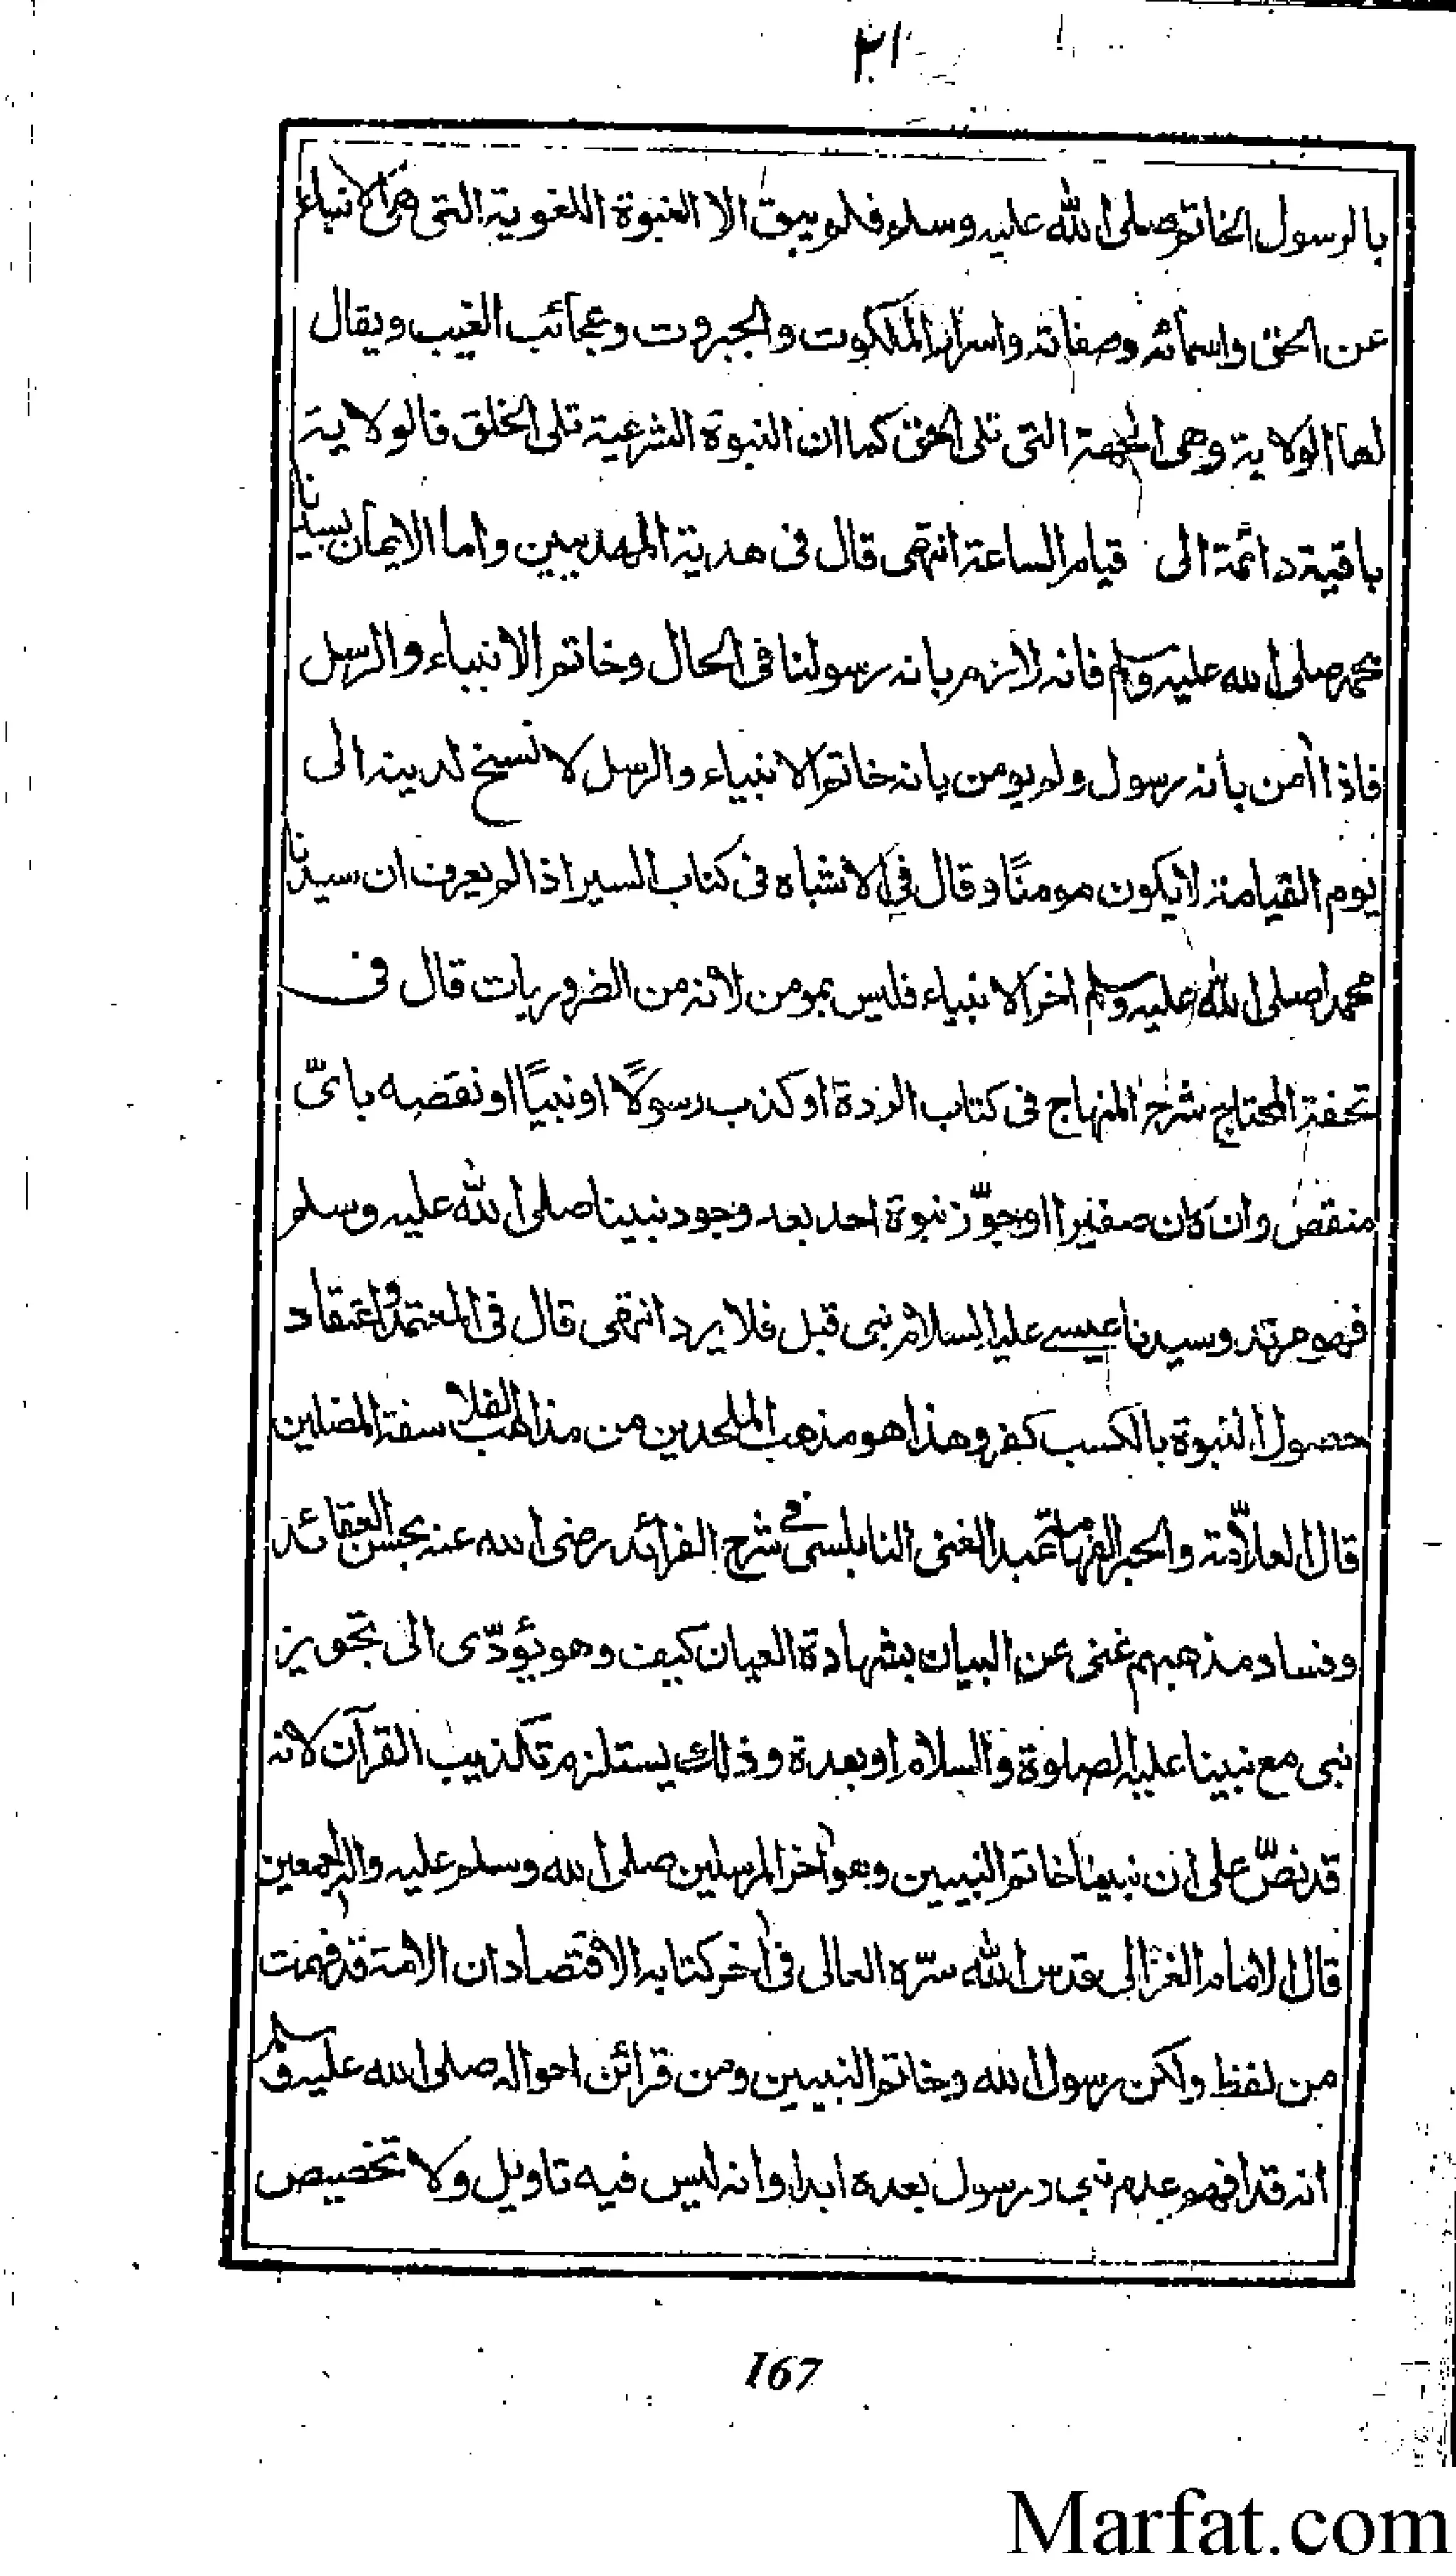 ٢١
بالرسول الخاتم صلى الله عليه وسلم فلم يبق الا النبوة اللغوية التى هى الانباء
عن الحق واسمائه وصفاته واسرار الملكوت والجبروت وعجائب الغيب ويقال
لها الولاية وهى الجهة التى تلى الحق كما ان النبوة الشرعية تلى الخلق فالولاية
باقية دائمة الى قيام الساعة انتهى قال فى هدية المهديين واما الايمان بسيدنا
محمد صلى الله عليه وسلم فانه لازم بانه رسولنا فى الحال وخاتم الانبياء والرسل
فاذا امن بانه رسول ولم يومن بانه خاتم الانبياء والرسل لا نسخ لدينه الى
يوم القيامة لايكون مومنًا وقال فى الاشباه فى كتاب السير اذا لم يعرف ان سيدنا
محمدا صلى الله عليه وسلم اخر الانبياء فليس بمومن لانه من الضروريات قال فى
تحفة المحتاج شرح المنهاج فى كتاب الردة او كذب رسولًا او نبيًا او نقصه باىّ
منقص وان كان صغيرا او جوّز نبوة احد بعد وجود نبينا صلى الله عليه وسلم
فهو مرتد وسيدنا عيسے عليه السلام نبى قبل فلا يرد انتهى قال فى المعتمد واعتقاد
حصول النبوة بالكسب كفر وهذا هو مذهب الملحدين من مذاهب الفلاسفة المضلين
قال العلامة والحبر الفهامة عبد الغنى النابلسى فى شرح الفرائد رضى الله عنه بحسن العقائد
وفساد مذهبهم غنى عن البيان بشهادة العيان كيف وهو يؤدّى الى تجويز
نبى مع نبينا عليه الصلوة والسلام او بعدة وذلك يستلزم تكذيب القرآن لانه
قد نصّ على ان نبينا خاتم النبيين وهو اخر المرسلين صلى الله وسلم عليه واله اجمعين
قال الامام الغزالى قدس الله سرّه العالى فى اخر كتابه الاقتصاد ان الامة قد فهمت
من لفظ ولكن رسول الله وخاتم النبيين ومن قرائن احواله صلى الله عليه وسلم
انه قد افهم عدم نبى ورسول بعده ابدا وانه ليس فيه تاويل ولا تخصيص
167
Marfat.com